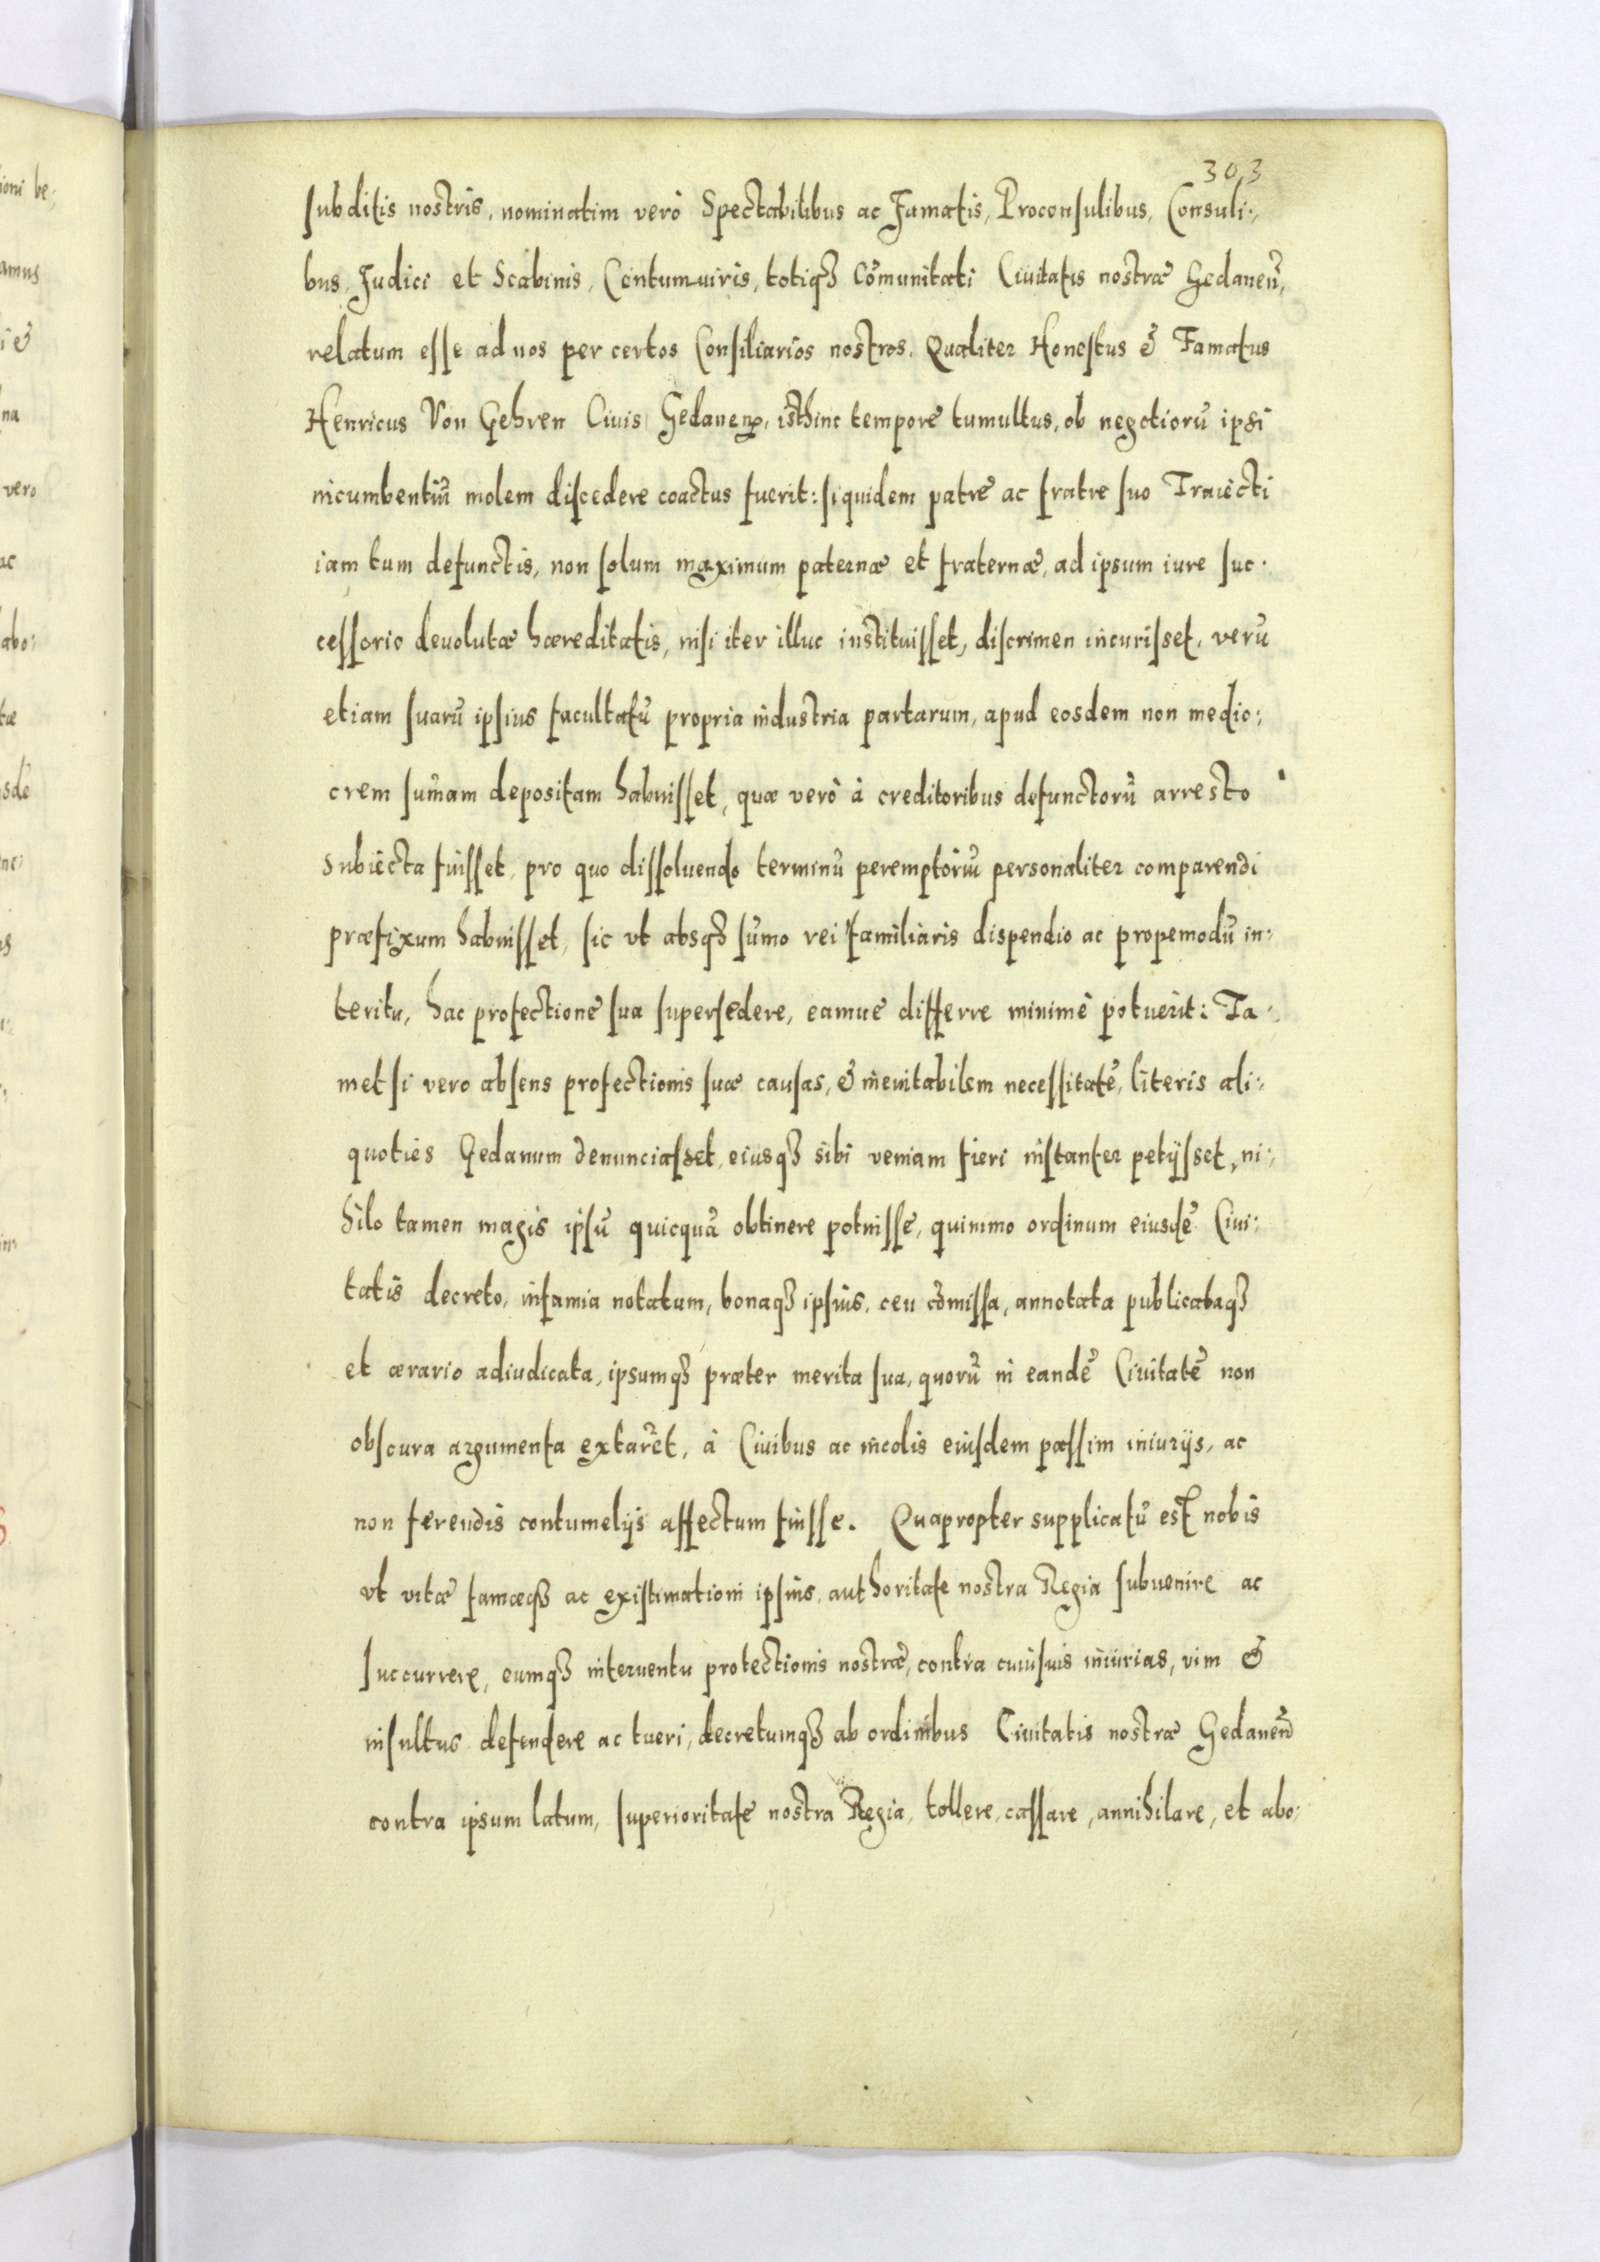 303
subditis nostris, nominatim verò Spectabilibus ac Famatis, Proconsulibus, Consuli:
bus, Judici et Scabinis, Centumuiris, totiqȝ Cōmunitati Ciuitatis nostræ Gedaneñ,
relatum esse ad nos per certos Consiliarios nostros. Qualiter Honestus & Famatus
Henricus Von Gehren Ciuis Gedaneñ, isthinc tempore tumultus, ob negotiorū ipsi
incumbentiū molem discedere coactus fuerit: siquidem patre ac fratre suo Traiecti
iam tum defunctis, non solum maximum paternæ et fraternæ, ad ipsum iure suc:
cessorio deuolutæ hæreditatis, nisi iter illuc instituisset, discrimen incurisset, verū
etiam suarū ipsius facultatū propria industria partarum, apud eosdem non medio:
crem sum̄am depositam habuisset, quæ verò à creditoribus defunctorū arresto
subiecta fuisset, pro quo dissoluendo terminū peremptoriū personaliter comparendi
præfixum habuisset, sic vt absqȝ sum̄o rei familiaris dispendio ac propemodū in:
teritu, hac profectione sua supersedere, eamue differre minimè potuerit: Ta:
metsi vero absens profectionis suæ causas, & ineuitabilem necessitatē, literis ali:
quoties Gedanum denunciasset, eiusqȝ sibi veniam fieri instanter petijsset, ni:
hilo tamen magis ipsū quicquā obtinere potuisse, quimmo ordinum eiusdē Ciui:
tatis decreto, infamia notatum, bonaqȝ ipsius, ceu cōmissa, annotata publicataqȝ
et ærario adiudicata, ipsumqȝ præter merita sua, quorū in eandē Ciuitatē non
obscura argumenta extarēt, à Ciuibus ac incolis eiusdem passim iniurijs, ac
non ferendis contumelijs affectum fuisse. Quapropter supplicatū est nobis
vt vitæ famæqȝ ac existimationi ipsius, authoritate nostra Regia subuenire ac
succurrere, eumqȝ interuentu protectionis nostræ, contra cuiusuis iniurias, vim &
insultus defendere ac tueri, decretumqȝ ab ordinibus Ciuitatis nostræ Gedaneñ
contra ipsum latum, superioritate nostra Regia, tollere, cassare, annihilare, et abo: